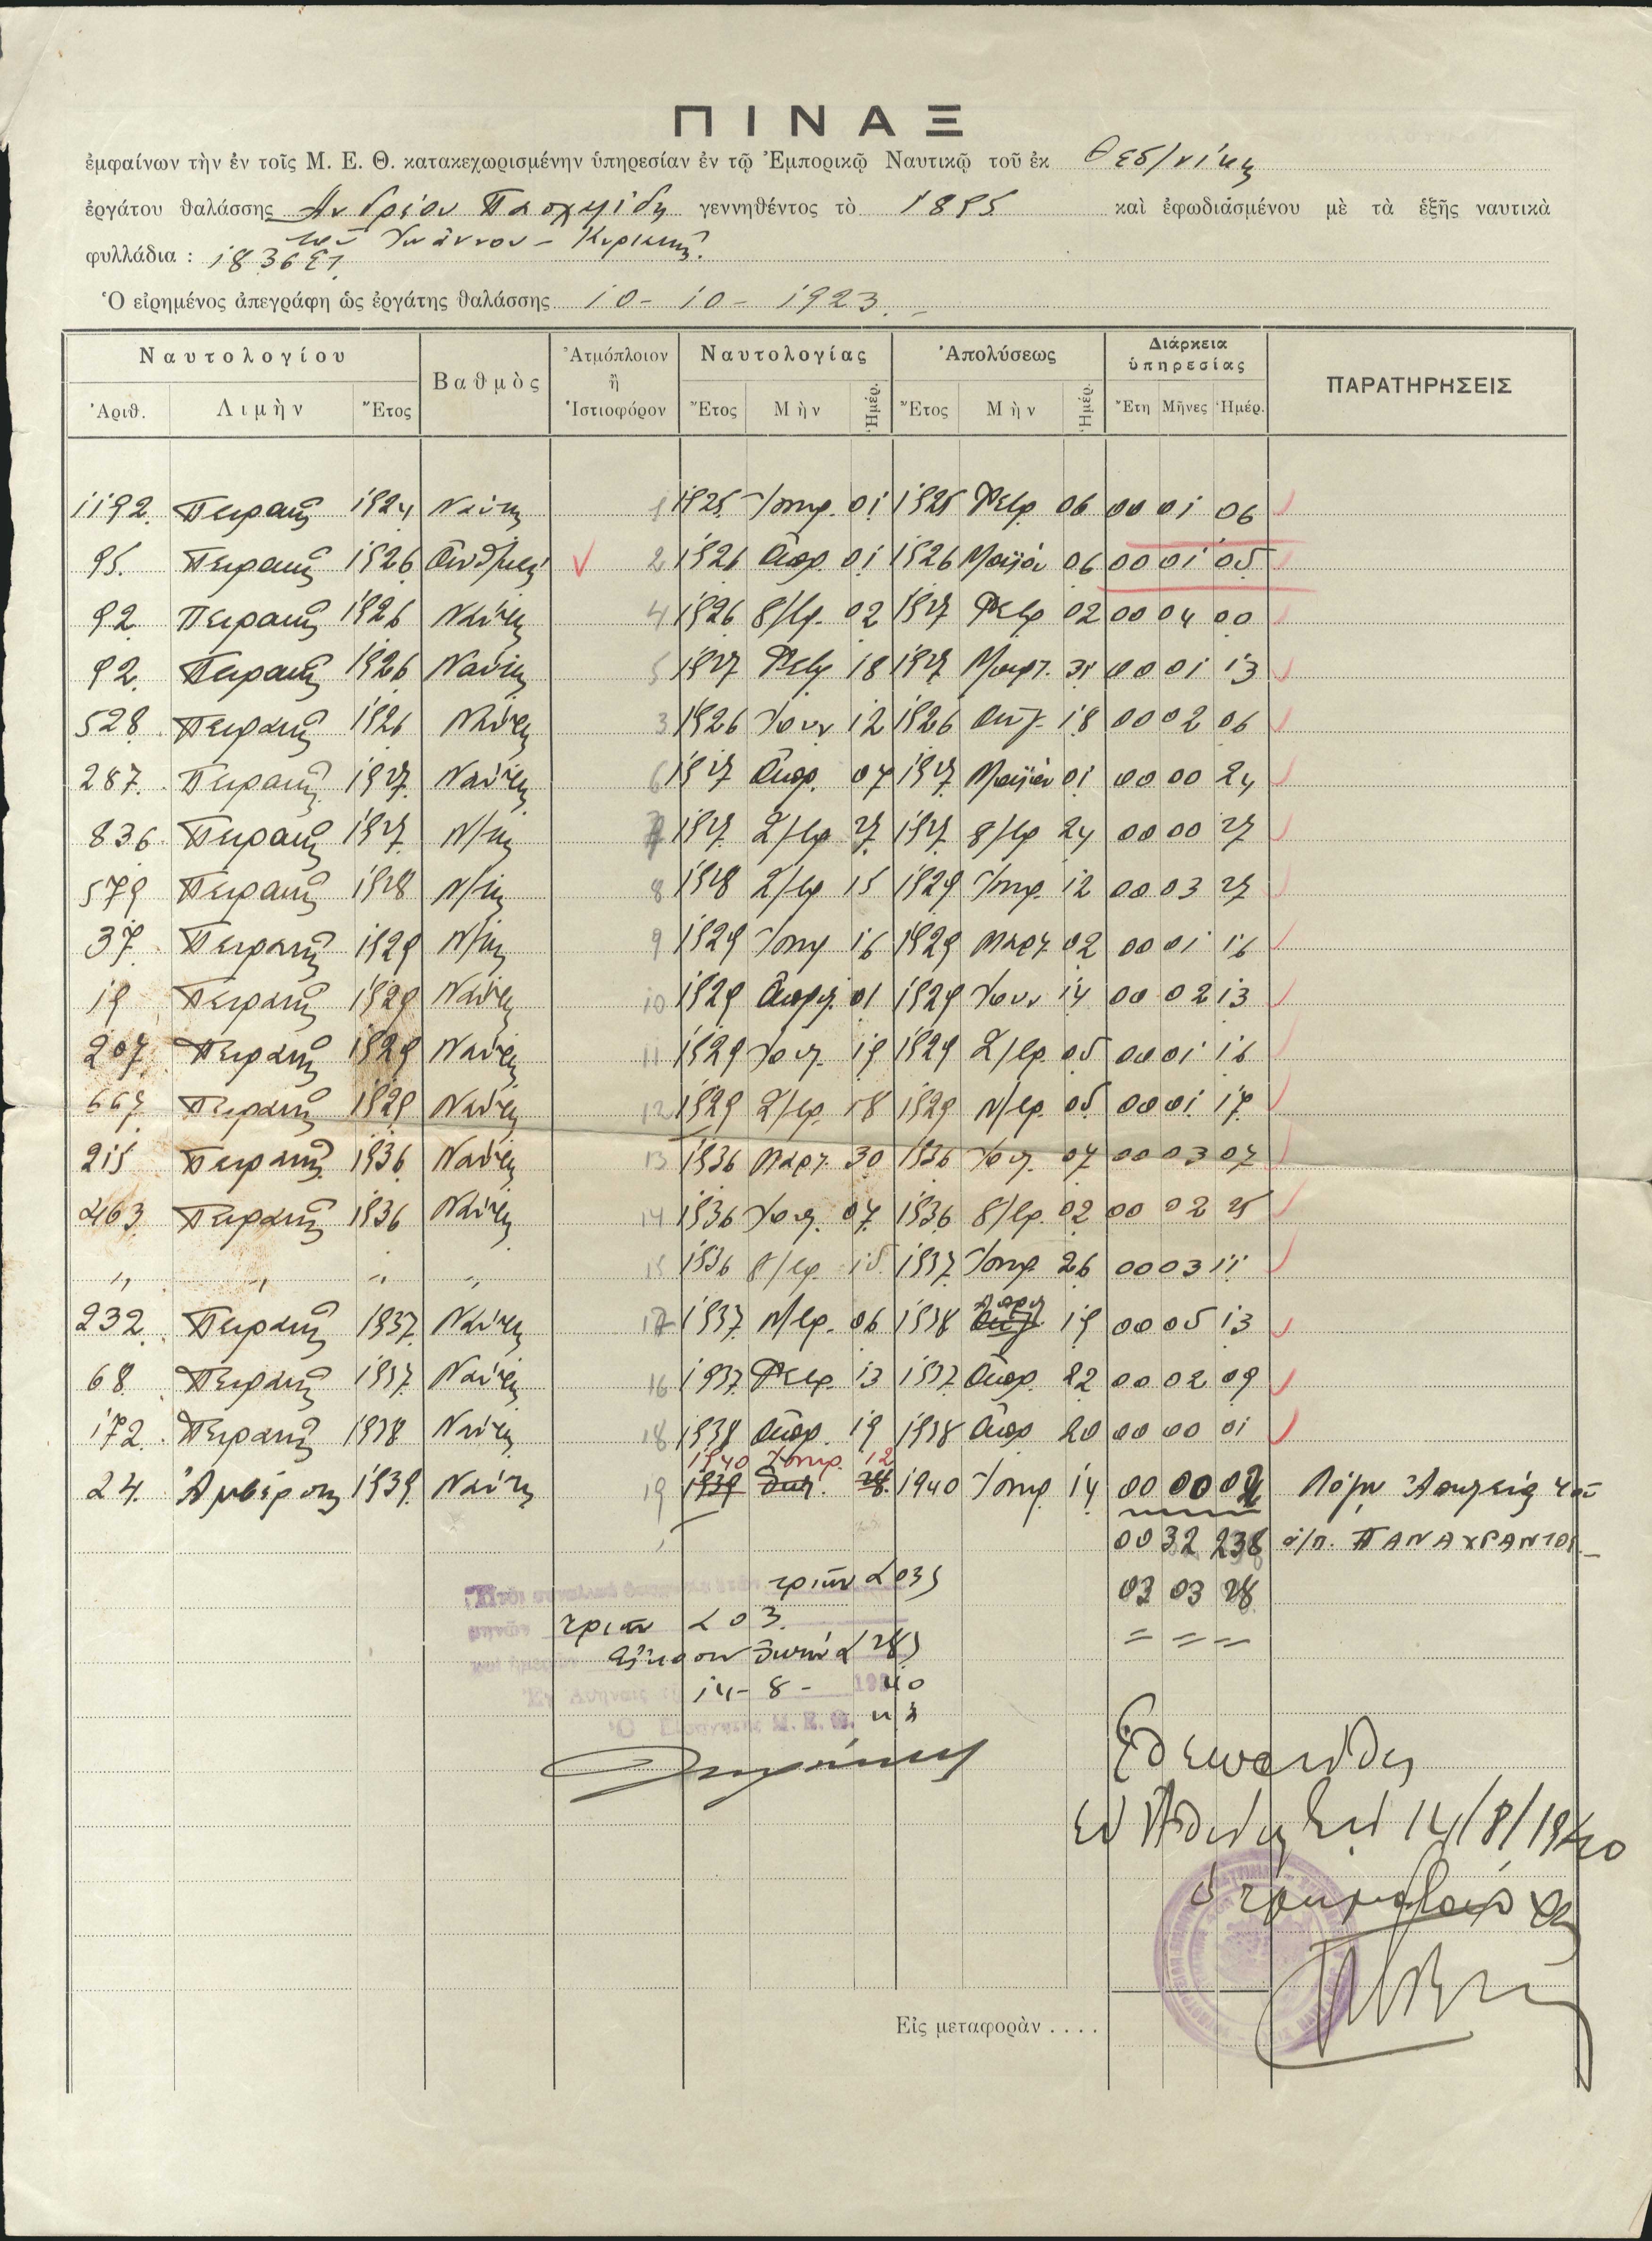 ΠΙΝΑΞ
ἐμφαίνων τὴν ἐν τοῖς Μ. Ε. Θ. κατακεχωρισμένην ὑπηρεσίαν ἐν τῷ Ἐμπορικῷ Ναυτικῷ τοῦ ἐκ Θεσ/νίκης
ἐργάτου θαλάσσης Ανδρέου Πασχαλίδη γεννηθέντος τὸ 1895 καὶ ἐφωδιασμένου μὲ τὰ ἑξῆς ναυτικὰ
του Ιωάννου - Κυριακῆ
φυλλάδια : 183651
Ὁ εἰρημένος ἀπεγράφη ὡς ἐργάτης θαλάσσης 10 - 10 - 1923.
Ναυτολογίου Βαθμὸς Ἀτμόπλοιον ἢ Ἱστιοφόρον Ναυτολογίας Ἀπολύσεως Διάρκεια ὑπηρεσίας ΠΑΡΑΤΗΡΗΣΕΙΣ
Ἀριθ. Λιμὴν Ἔτος Ἔτος Μὴν Ἡμέρ. Ἔτος Μὴν Ἡμέρ. Ἔτη Μῆνες Ἡμέρ.
1192. Πειραιῶς 1924 Ναύτης 1 1925 Ιανρ. 01 1925 Φεβρ. 06 00 01 06
95. Πειραιῶς 1926 2 1926 Απρ. 01 1926 Μαΐου 06 00 01 05
92 Πειραιῶς 1926 Ναύτης 4 1926 8/βρ. 02 1927 Φεβρ 02 00 04 00
92. Πειραιῶς 1926 Ναύτης 5 1927 Φεβρ 18 1927 Μαρτ. 31 00 01 13
528. Πειραιῶς 1926 Ναύτης 3 1926 Ιουν 12 1926 Αυγ. 18 00 02 06
287. Πειραιῶς 1927 Ναύτης 6 1927 Απρ. 07 1927 Μαΐου 01 00 00 24
836. Πειραιῶς 1927 Ν/της 7 1927 Σ/βρ 27 1927 8/βρ 24 00 00 27
579 Πειραιῶς 1928 Ν/της 8 1928 Σ/βρ 15 1929 Ιανρ. 12 00 03 27
37. Πειραιῶς 1929 Ν/της 9 1929 Ιανρ 16 1929 Μαρτ 02 00 01 16
19 Πειραιῶς 1929 Ναύτης 10 1929 Απρ. 01 1929 Ιουν 14 00 02 13
207. Πειραιῶς 1929 Ναύτης 11 1929 Ιουλ. 19 1929 Σ/βρ. 05 00 01 16
667. Πειραιῶς 1929 Ναύτης 12 1929 Σ/βρ. 18 1929 Ν/βρ. 05 00 01 17
215 Πειραιῶς 1936 Ναύτης 13 1936 Μαρτ. 30 1936 Ιουλ. 07 00 03 07
463. Πειραιῶς 1936 Ναύτης 14 1936 Ιουλ. 07 1936 8/βρ. 02 00 02 25
〃 〃 〃 〃 15 1936 8/βρ. 15 1937 Ιανρ 26 00 03 11
232. Πειραιῶς 1937 Ναύτης 17 1937 Ν/βρ. 06 1938 Απρ 19 00 05 13
68. Πειραιῶς 1937 Ναύτης 16 1937 Φεβρ. 13 1937 Απρ. 22 00 02 09
172. Πειραιῶς 1938 Ναύτης 18 1938 Απρ. 19 1938 Απρ 20 00 00 01
1940 Ιανρ. 12
24. Ἀμβέρσης 1939 Ναύτης 19 1939 28. 1940 Ιανρ. 14 00 00 02 Λόγῳ Ἀπωλείας τοῦ
00 32 238 ἀ/π. ΠΑΝΑΧΡΑΝΤΟΣ
τριῶν (03) 03 03 28
τριῶν (03) = = =
εἴκοσι ὀκτώ (28)
Ἐν Ἀθήναις 14 - 8 - 1940
Ὁ Μ. Ε. Θ.
Ἐθεωρήθη
Ἐν Ἀθήναις τῇ 14/8/1940
ὁ τμηματάρχης
Εἰς μεταφορὰν . . . .